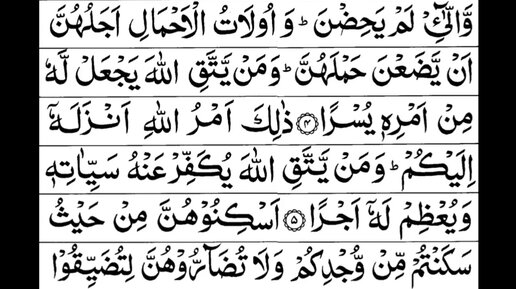 وَّالّٰٓـِٔیْ لَمْ یَحِضْنَ ؕ وَ اُولَاتُ الْاَحْمَالِ اَجَلُهُنَّ
اَنْ یَّضَعْنَ حَمْلَهُنَّ ؕ وَمَنْ یَّتَّقِ اللّٰهَ یَجْعَلْ لَّهٗ
مِنْ اَمْرِهٖ یُسْرًا ﴿۴﴾ ذٰلِكَ اَمْرُ اللّٰهِ اَنْزَلَهٗۤ
اِلَیْكُمْ ؕ وَمَنْ یَّتَّقِ اللّٰهَ یُكَفِّرْ عَنْهُ سَیِّاٰتِهٖ
وَیُعْظِمْ لَهٗۤ اَجْرًا ﴿۵﴾ اَسْكِنُوْهُنَّ مِنْ حَیْثُ
سَكَنْتُمْ مِّنْ وُّجْدِكُمْ وَلَا تُضَآرُّوْهُنَّ لِتُضَیِّقُوْا